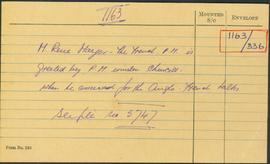 1163
MOUNTED S/C
ENVELOPE
1163/336
M. Rene Mayer - the French P.M. is
greeted by P.M. Winston Churchill
when he arrived for the Anglo-French talks
no 5747
Form No. 240